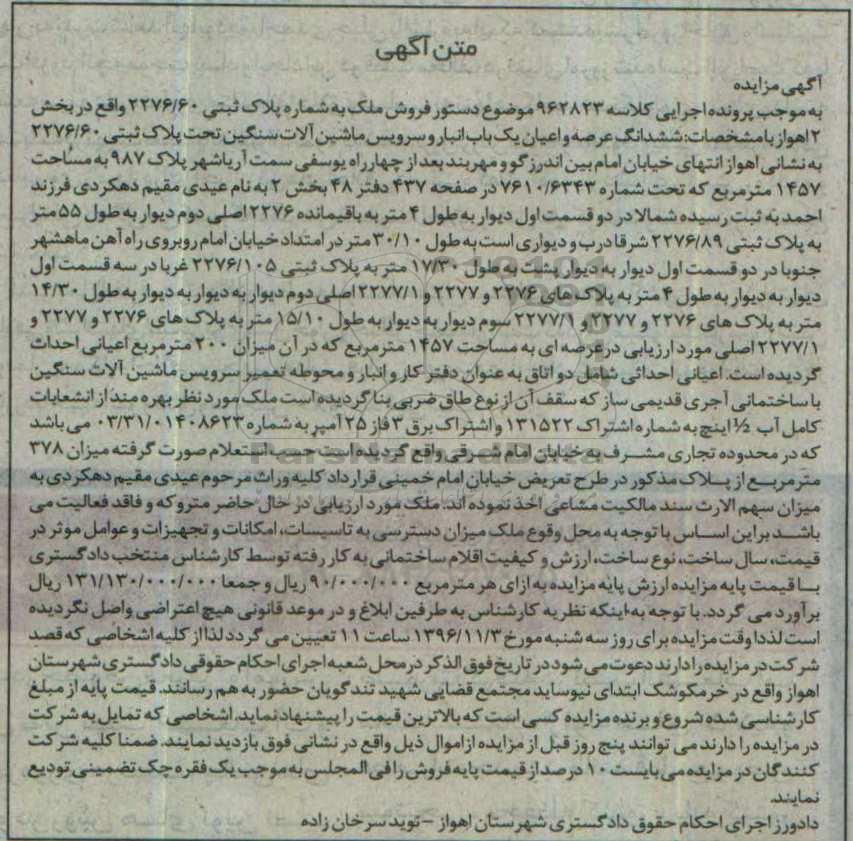 متن آگهی
آگهی مزایده
به موجب پرونده اجرایی کلاسه ۹۶۲۸۲۳ موضوع دستور فروش ملک به شماره پلاک ثبتی ۲۲۷۶/۶۰ واقع در بخش
۲ اهواز با مشخصات: ششدانگ عرصه و اعیان یک باب انبار و سرویس ماشین آلات سنگین تحت پلاک ثبتی ۲۲۷۶/۶۰
به نشانی اهواز انتهای خیابان امام بین اندرزگو و مهربند بعد از چهارراه یوسفی سمت آریاشهر پلاک ۹۸۷ به مساحت
۱۴۵۷ مترمربع که تحت شماره ۷۶۱۰/۶۳۴۳ در صفحه ۴۳۷ دفتر ۴۸ بخش ۲ به نام عیدی مقیم دهکردی فرزند
احمد به ثبت رسیده شمالا در دو قسمت اول دیوار به طول ۴ متر به باقیمانده ۲۲۷۶ اصلی دوم دیوار به طول ۵۵ متر
به پلاک ثبتی ۲۲۷۶/۸۹ شرقا درب و دیواری است به طول ۳۰/۱۰ متر در امتداد خیابان امام روبروی راه آهن ماهشهر
جنوبا در دو قسمت اول دیوار به دیوار پشت به طول ۱۷/۳۰ متر به پلاک ثبتی ۲۲۷۶/۱۰۵ غربا در سه قسمت اول
دیوار به دیوار به طول ۴ متر به پلاک های ۲۲۷۶ و ۲۲۷۷ و ۲۲۷۷/۱ اصلی دوم دیوار به دیوار به دیوار به طول ۱۴/۳۰
متر به پلاک های ۲۲۷۶ و ۲۲۷۷ و ۲۲۷۷/۱ سوم دیوار به دیوار به طول ۱۵/۱۰ متر به پلاک های ۲۲۷۶ و ۲۲۷۷ و
۲۲۷۷/۱ اصلی مورد ارزیابی درعرصه ای به مساحت ۱۴۵۷ مترمربع که در آن میزان ۲۰۰ مترمربع اعیانی احداث
گردیده است. اعیانی احداثی شامل دو اتاق به عنوان دفتر کار و انبار و محوطه تعمیر سرویس ماشین آلات سنگین
با ساختمانی آجری قدیمی ساز که سقف آن از نوع طاق ضربی بنا گردیده است ملک مورد نظر بهره مند از انشعابات
کامل آب ½ اینچ به شماره اشتراک ۱۳۱۵۲۲ و اشتراک برق ۳ فاز ۲۵ آمپر به شماره ۰۳/۳۱/۰۱۴۰۸۶۲۳ می باشد
که در محدوده تجاری مشرف به خیابان امام شرقی واقع گردیده است حسب استعلام صورت گرفته میزان ۳۷۸
مترمربع از پلاک مذکور در طرح تعریض خیابان امام خمینی قرار داد کلیه وراث مرحوم عیدی مقیم دهکردی به
میزان سهم الارث سند مالکیت مشاعی اخذ نموده اند. ملک مورد ارزیابی در حال حاضر متروکه و فاقد فعالیت می
باشد براین اساس با توجه به محل وقوع ملک میزان دسترسی به تاسیسات، امکانات و تجهیزات و عوامل موثر در
قیمت، سال ساخت، نوع ساخت، ارزش و کیفیت اقلام ساختمانی به کار رفته توسط کارشناس منتخب دادگستری
با قیمت پایه مزایده ارزش پایه مزایده به ازای هر مترمربع ۹۰/۰۰۰/۰۰۰ ریال و جمعا ۱۳۱/۱۳۰/۰۰۰/۰۰۰ ریال
برآورد می گردد. با توجه به اینکه نظریه کارشناس به طرفین ابلاغ و در موعد قانونی هیچ اعتراضی واصل نگردیده
است لذا وقت مزایده برای روز سه شنبه مورخ ۱۳۹۶/۱۱/۳ ساعت ۱۱ تعیین می گردد لذا از کلیه اشخاصی که قصد
شرکت در مزایده را دارند دعوت می شود در تاریخ فوق الذکر در محل شعبه اجرای احکام حقوقی دادگستری شهرستان
اهواز واقع در خرمکوشک ابتدای نیوساید مجتمع قضایی شهید تندگویان حضور به هم رسانند. قیمت پایه از مبلغ
کارشناسی شده شروع و برنده مزایده کسی است که بالاترین قیمت را پیشنهاد نماید. اشخاصی که تمایل به شرکت
در مزایده را دارند می توانند پنج روز قبل از مزایده ازاموال ذیل واقع در نشانی فوق بازدید نمایند. ضمنا کلیه شرکت
کنندگان در مزایده می بایست ۱۰ درصد از قیمت پایه فروش را فی المجلس به موجب یک فقره چک تضمینی تودیع
نمایند.
دادورز اجرای احکام حقوق دادگستری شهرستان اهواز - نوید سرخان زاده